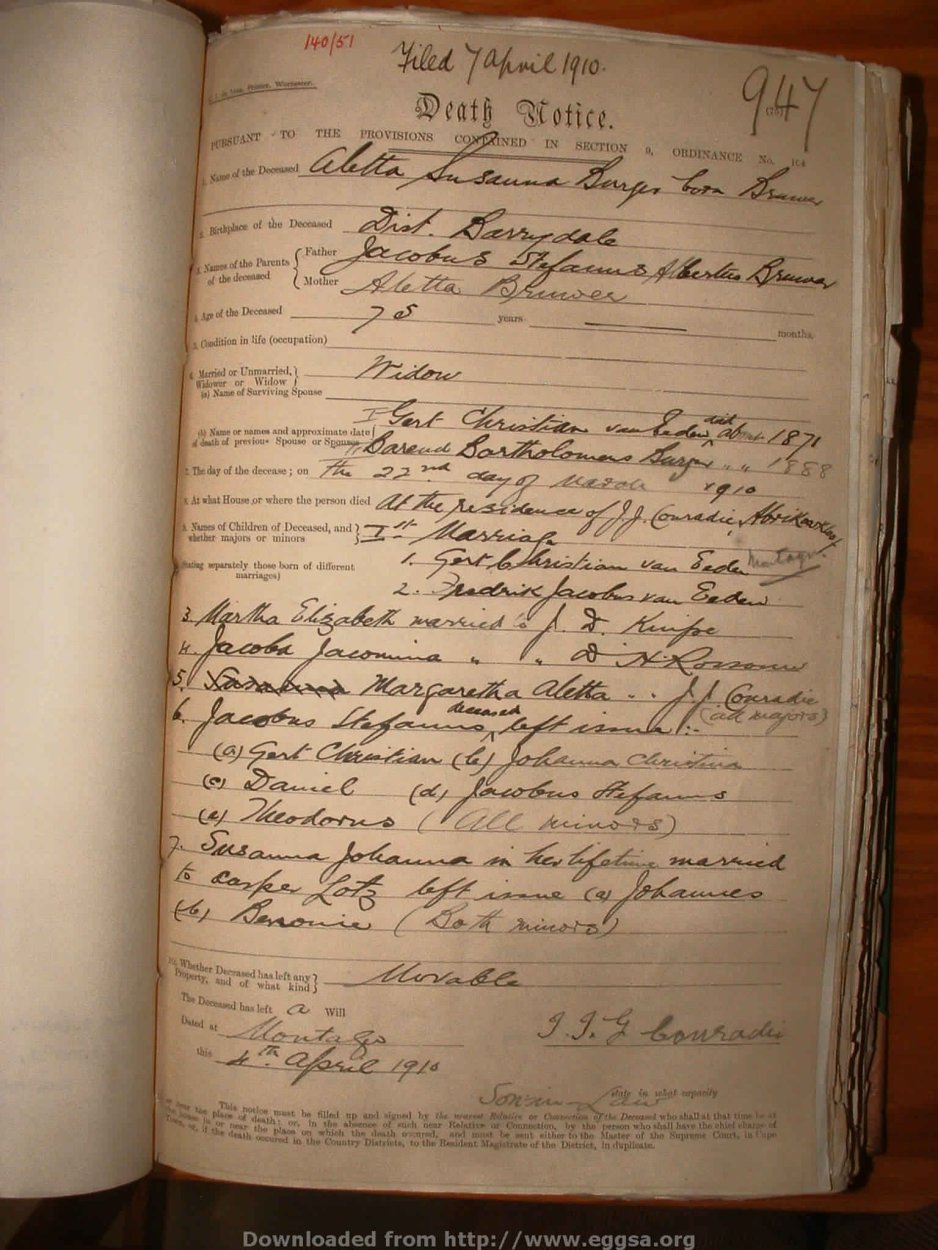 140/51
Filed 7 April 1910.
947
Printer, Worcester.
Death Notice.
PURSUANT TO THE PROVISIONS CONTAINED IN SECTION 9, ORDINANCE No. 104
1. Name of the Deceased Aletta Susanna Burger born Bruwer
2. Birthplace of the Deceased Dist. Barrydale
3. Names of the Parents of the deceased
Father Jacobus Stefanus Albertus Bruwer
Mother Aletta Bruwer
4. Age of the Deceased 75 years months.
5. Condition in life (occupation)
6. Married or Unmarried, Widower or Widow Widow
(a) Name of Surviving Spouse
(b) Name or names and approximate date of death of previous Spouse or Spouses
I Gert Christian van Eeden, died about 1871
II Barend Bartholomeus Burger " " 1888
7. The day of the decease; on The 22nd day of March 1910
8. At what House, or where the person died At the residence of J.J. Conradie, Montagu
9. Names of Children of Deceased, and whether majors or minors Ist Marriage
(Stating separately those born of different marriages)
1. Gert Christian van Eeden
2. Fredrik Jacobus van Eeden
3. Martha Elizabeth married to J. D. Knipe
4. Jacoba Jacomina " " D H Rossouw
5. Susanna Margaretha Aletta " " J J Conradie
(all majors)
6. Jacobus Stefanus, deceased left issue :-
(a) Gert Christian (b) Johanna Christina
(c) Daniel (d) Jacobus Stefanus
(e) Theodorus (All minors)
7. Susanna Johanna in her lifetime married
to Casper Lotz left issue (a) Johannes
(b) Benonie (Both minors)
10. Whether Deceased has left any Property, and of what kind Movable
The Deceased has left a Will
Dated at Montagu
J. J. G Conradie
this 4th April 1910
Son in Law
state in what capacity
This notice must be filled up and signed by the nearest Relative or Connection of the Deceased who shall at that time be at
or near the place of death; or, in the absence of such near Relative or Connection, by the person who shall have the chief charge of
the house in or near the place on which the death occurred, and must be sent either to the Master of the Supreme Court, in Cape
Town, or, if the death occurred in the Country Districts, to the Resident Magistrate of the District, in duplicate.
Downloaded from http://www.eggsa.org